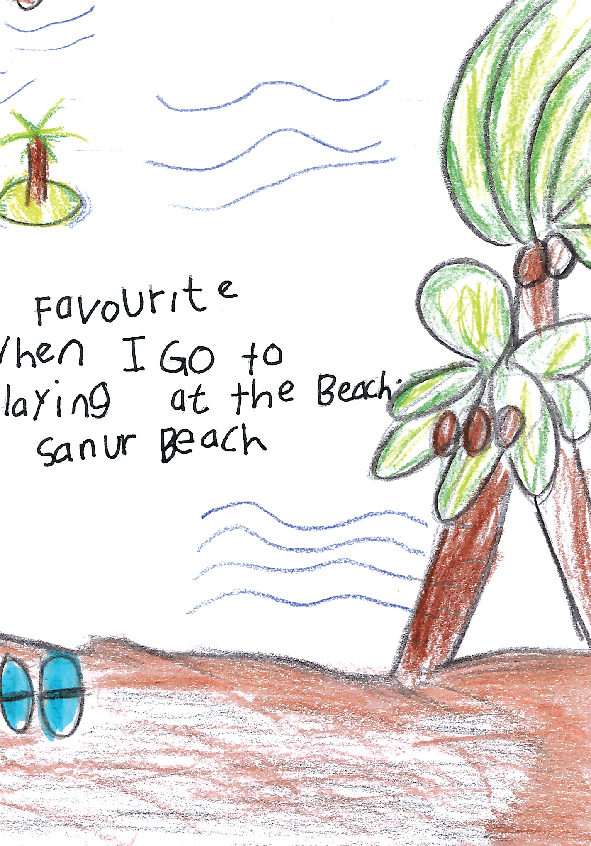 Favourite
When I Go to
laying at the Beach.
Sanur Beach